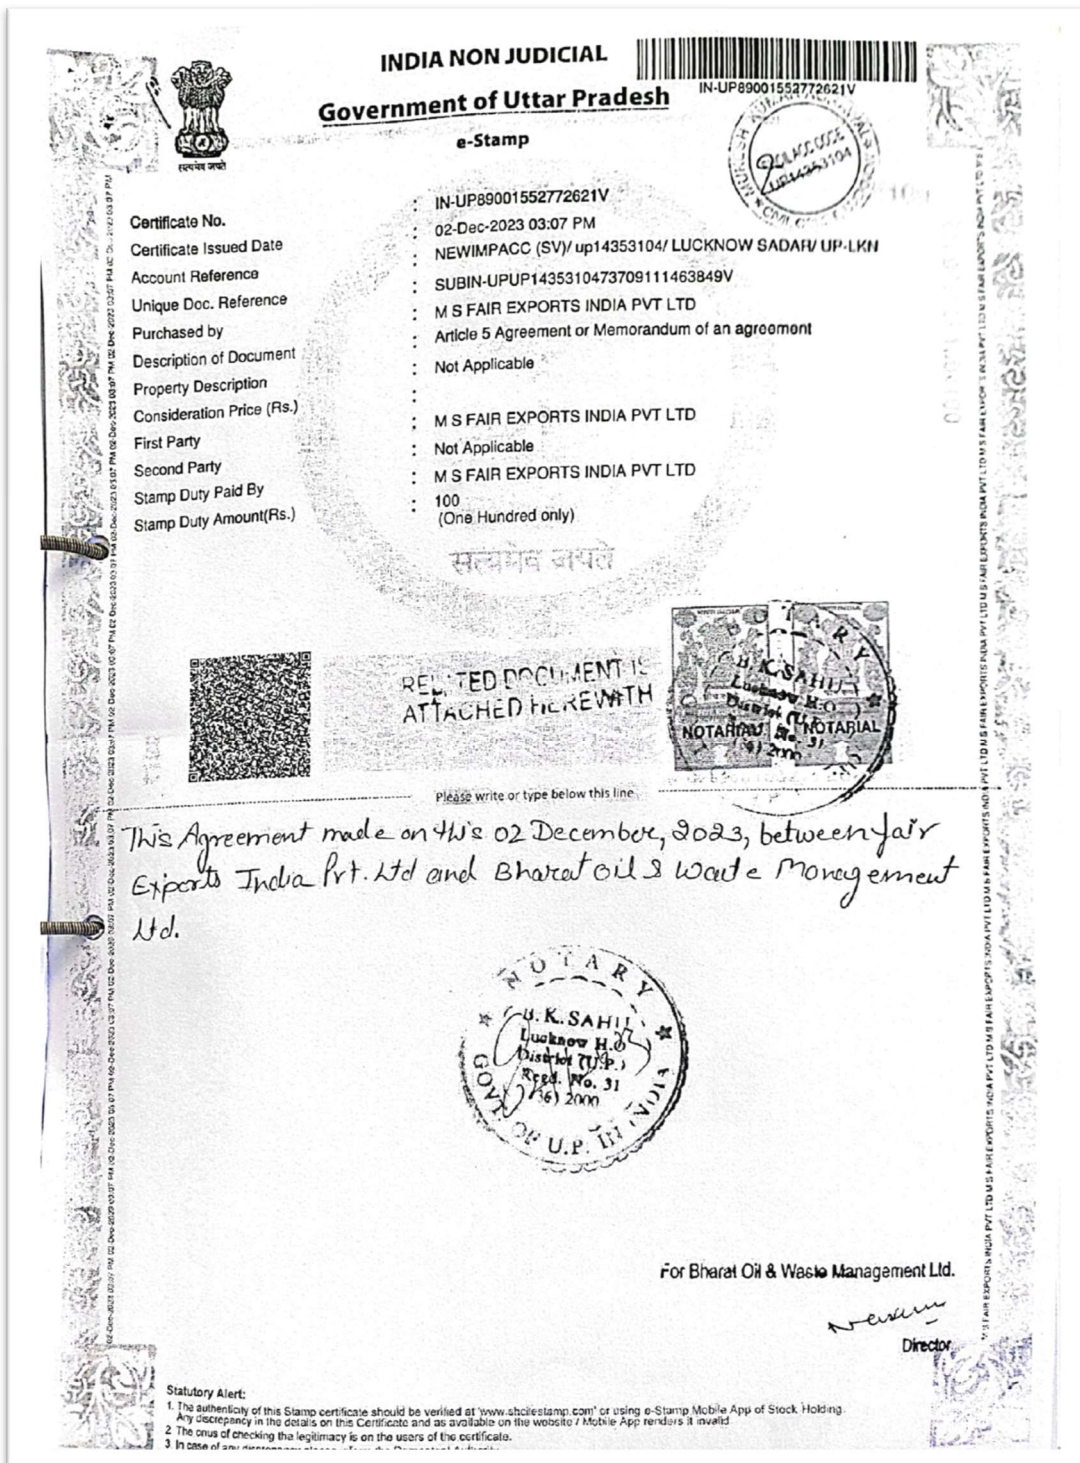 INDIA NON JUDICIAL
IN-UP89001552772621V
Government of Uttar Pradesh
e-Stamp
सत्यमेव जयते
ACC CODE
UP14353104
Certificate No. : IN-UP89001552772621V
Certificate Issued Date : 02-Dec-2023 03:07 PM
Account Reference : NEWIMPACC (SV)/ up14353104/ LUCKNOW SADAR/ UP-LKN
Unique Doc. Reference : SUBIN-UPUP1435310473709111463849V
Purchased by : M S FAIR EXPORTS INDIA PVT LTD
Description of Document : Article 5 Agreement or Memorandum of an agreement
Property Description : Not Applicable
Consideration Price (Rs.) :
First Party : M S FAIR EXPORTS INDIA PVT LTD
Second Party : Not Applicable
Stamp Duty Paid By : M S FAIR EXPORTS INDIA PVT LTD
Stamp Duty Amount(Rs.) : 100
(One Hundred only)
सत्यमेव जयते
RELATED DOCUMENT IS
ATTACHED HEREWITH
NOTARY
SAHU
Lucknow H.O
NOTARIAL NOTARIAL
No. 31
2000
Please write or type below this line
This Agreement made on this 02 December, 2023, between fair
Exports India Pvt. Ltd and Bharat oil & Waste Management
Ltd.
NOTARY
K. SAHU
Lucknow H.O
District (U.P.)
Regd. No. 31
2000
GOVT. OF U.P. IN INDIA
For Bharat Oil & Waste Management Ltd.
Director
Statutory Alert:
1. The authenticity of this Stamp certificate should be verified at 'www.shcilestamp.com' or using e-Stamp Mobile App of Stock Holding.
Any discrepancy in the details on this Certificate and as available on the website / Mobile App renders it invalid
2 The onus of checking the legitimacy is on the users of the certificate.
3 In case of any